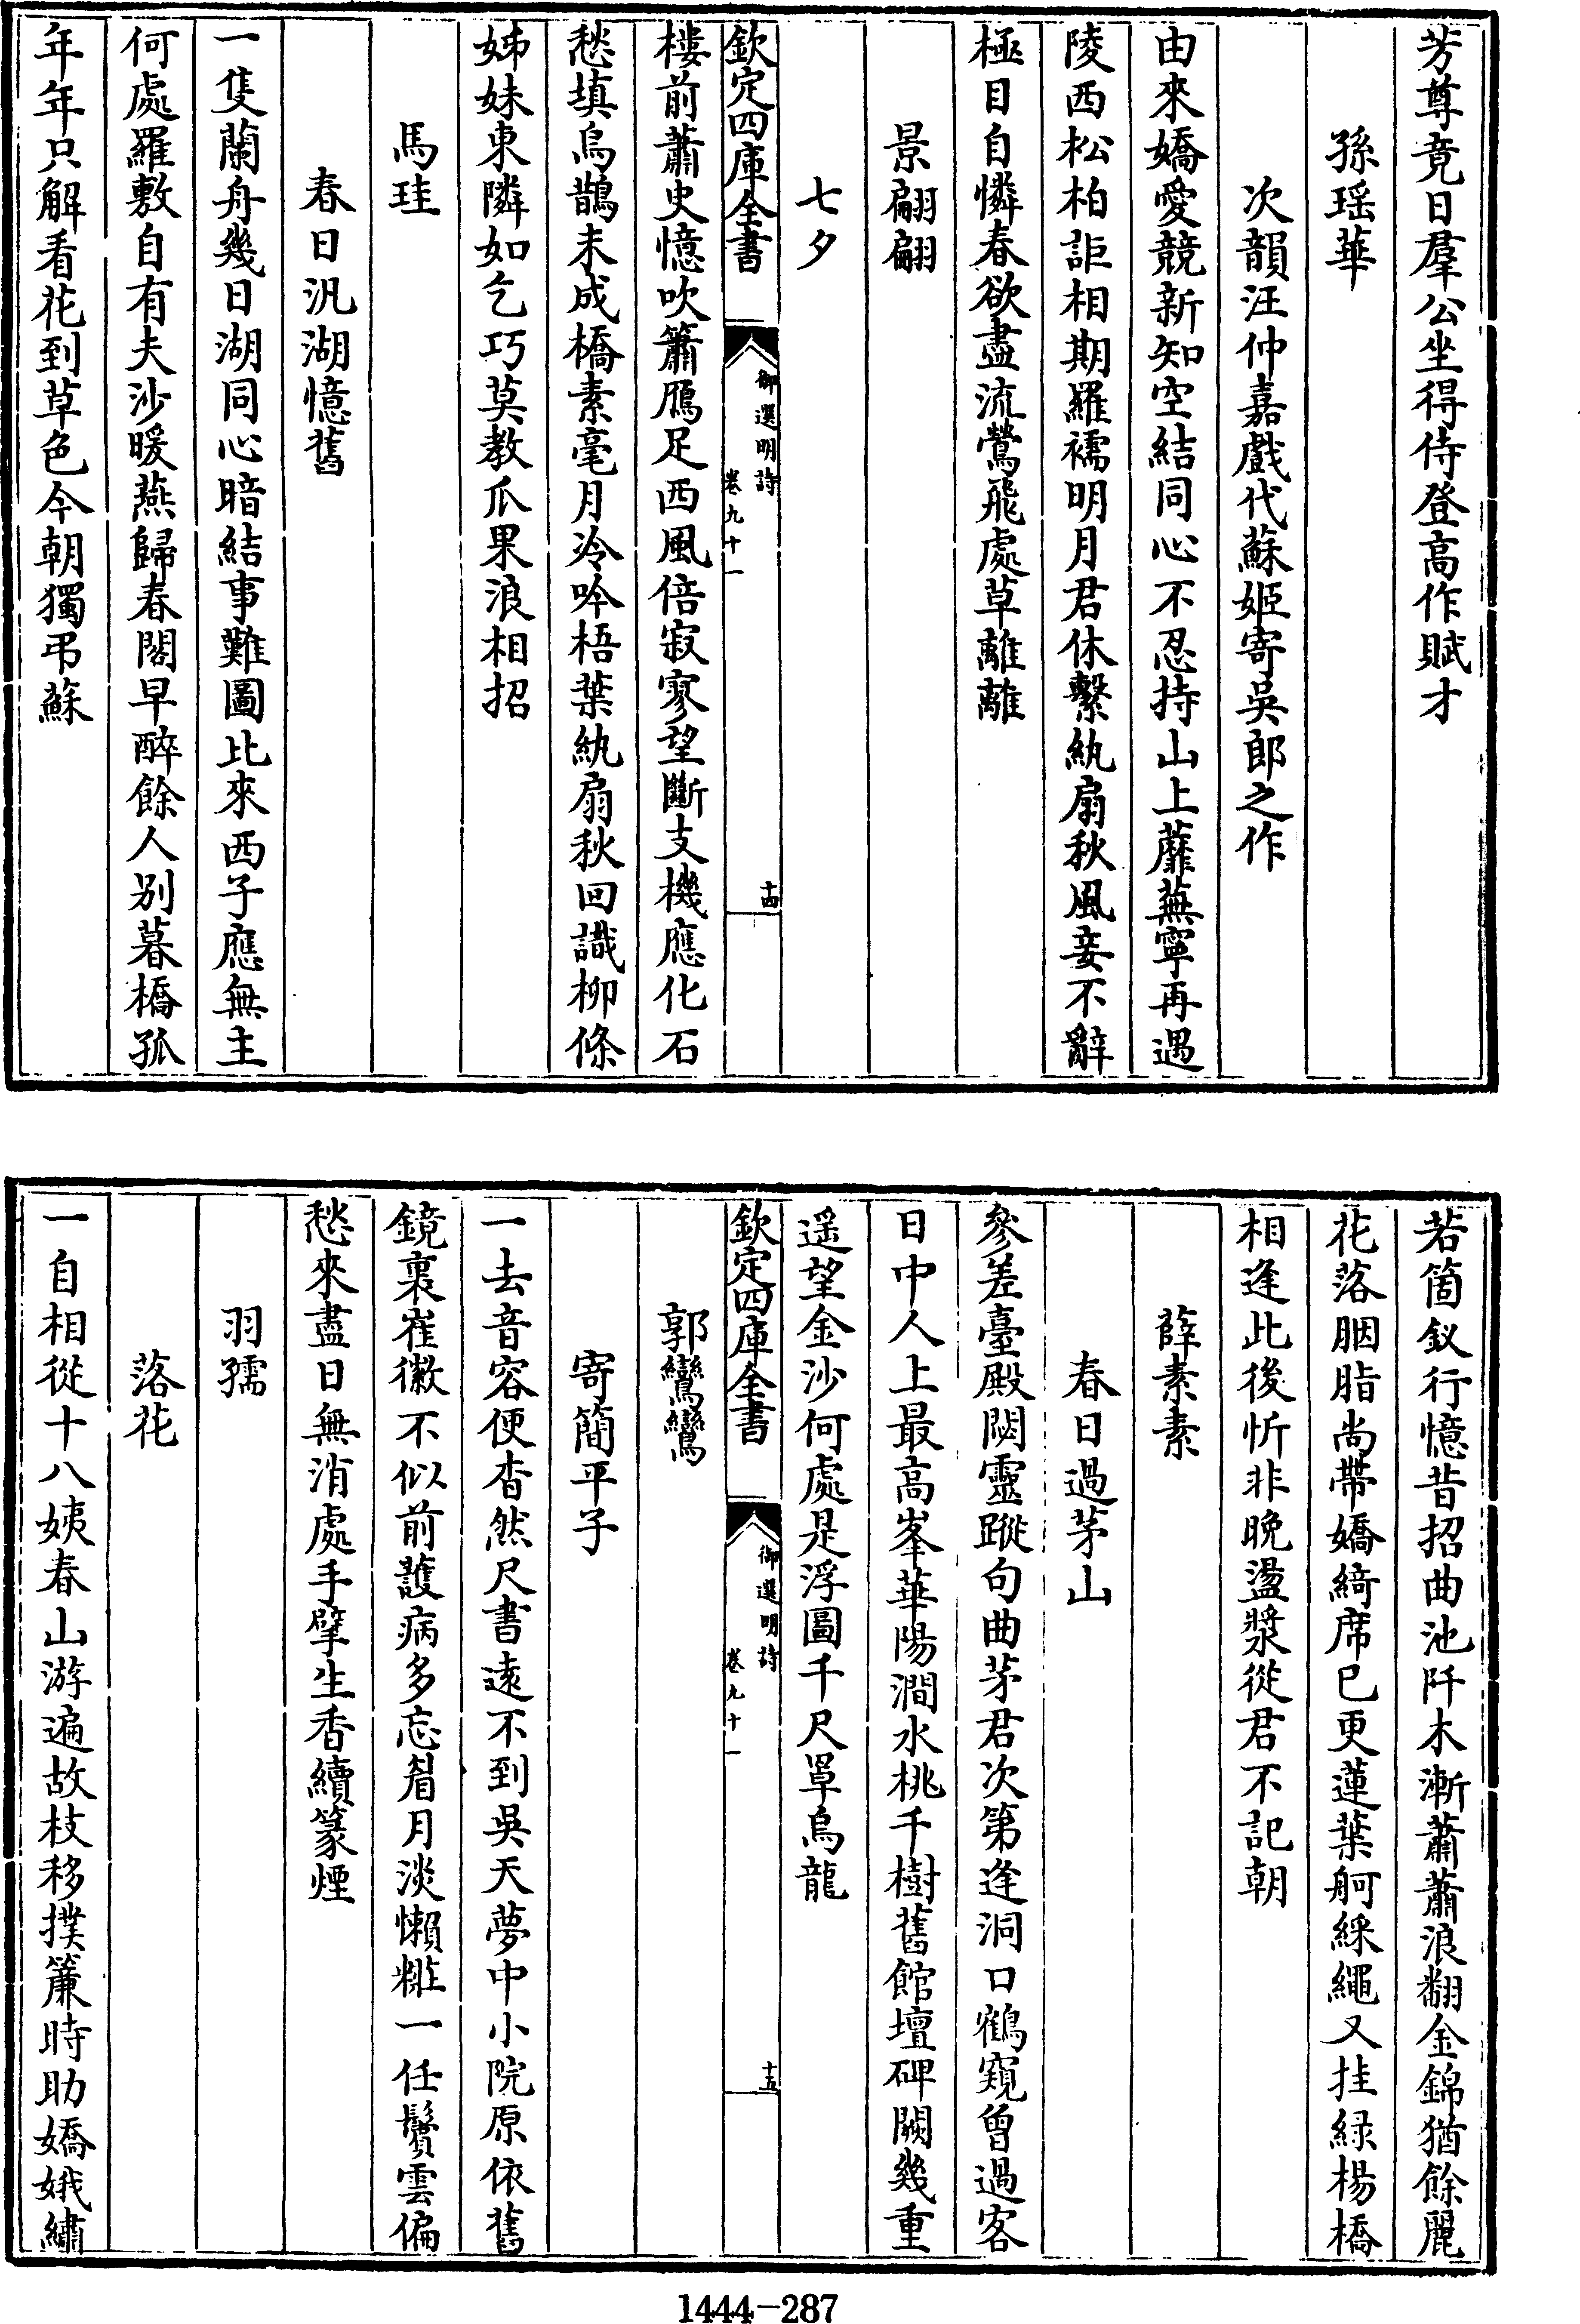 芳尊竟日羣公坐得侍登高作賦才
孫瑶華
次韻汪仲嘉戲代蘇姬寄吳郎之作
由來嬌愛競新知空結同心不忍持山上蘼蕪寧再遇
陵西松柏詎相期羅襦明月君休繫紈扇秋風妾不辭
極目自憐春欲盡流鶯飛處草離離
景翩翩
七夕
欽定四庫全書
御選明詩
卷九十一
十四
樓前蕭史憶吹簫鴈足西風倍寂寥望斷支機應化石
愁填烏鵲未成橋素毫月冷吟梧葉紈扇秋回識柳條
姊妹東隣如乞巧莫教瓜果浪相招
馬珪
春日汎湖憶舊
一隻蘭舟幾日湖同心暗結事難圖比來西子應無主
何處羅敷自有夫沙暖燕歸春閣早醉餘人别暮橋孤
年年只解看花到草色今朝獨弔蘇
若箇釵行憶昔招曲池阡木漸蕭蕭浪翻金錦猶餘麗
花落胭脂尚帶嬌綺席已更蓮葉舸綵繩又挂緑楊橋
相逢此後忻非晚盪漿從君不記朝
薛素素
春日過茅山
參差臺殿閟靈蹤句曲茅君次第逢洞口鶴窺曾過客
日中人上最高峯華陽澗水桃千樹舊館壇碑闕幾重
遥望金沙何處是浮圖千尺罩烏龍
欽定四庫全書
御選明詩
卷九十一
十五
郭鸞鸞
寄簡平子
一去音容便杳然尺書遠不到吳天夢中小院原依舊
鏡裏崔徽不似前護病多忘眉月淡懶粧一任鬢雲偏
愁來盡日無消處手擘生香續篆煙
羽孺
落花
一自相從十八姨春山游遍故枝移撲簾時助嬌娥繡
1444-287